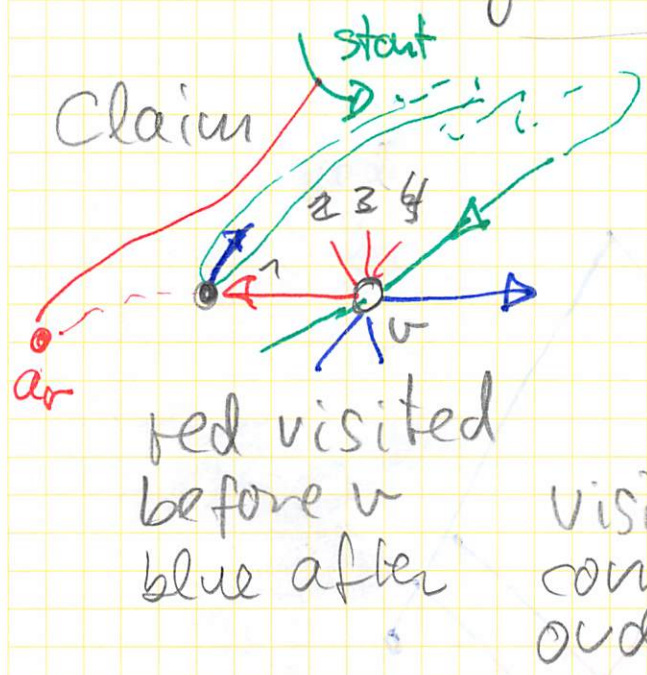 start
Claim
2 3 4
1
v
ar
red visited
before v
blue after
visi
con
ord